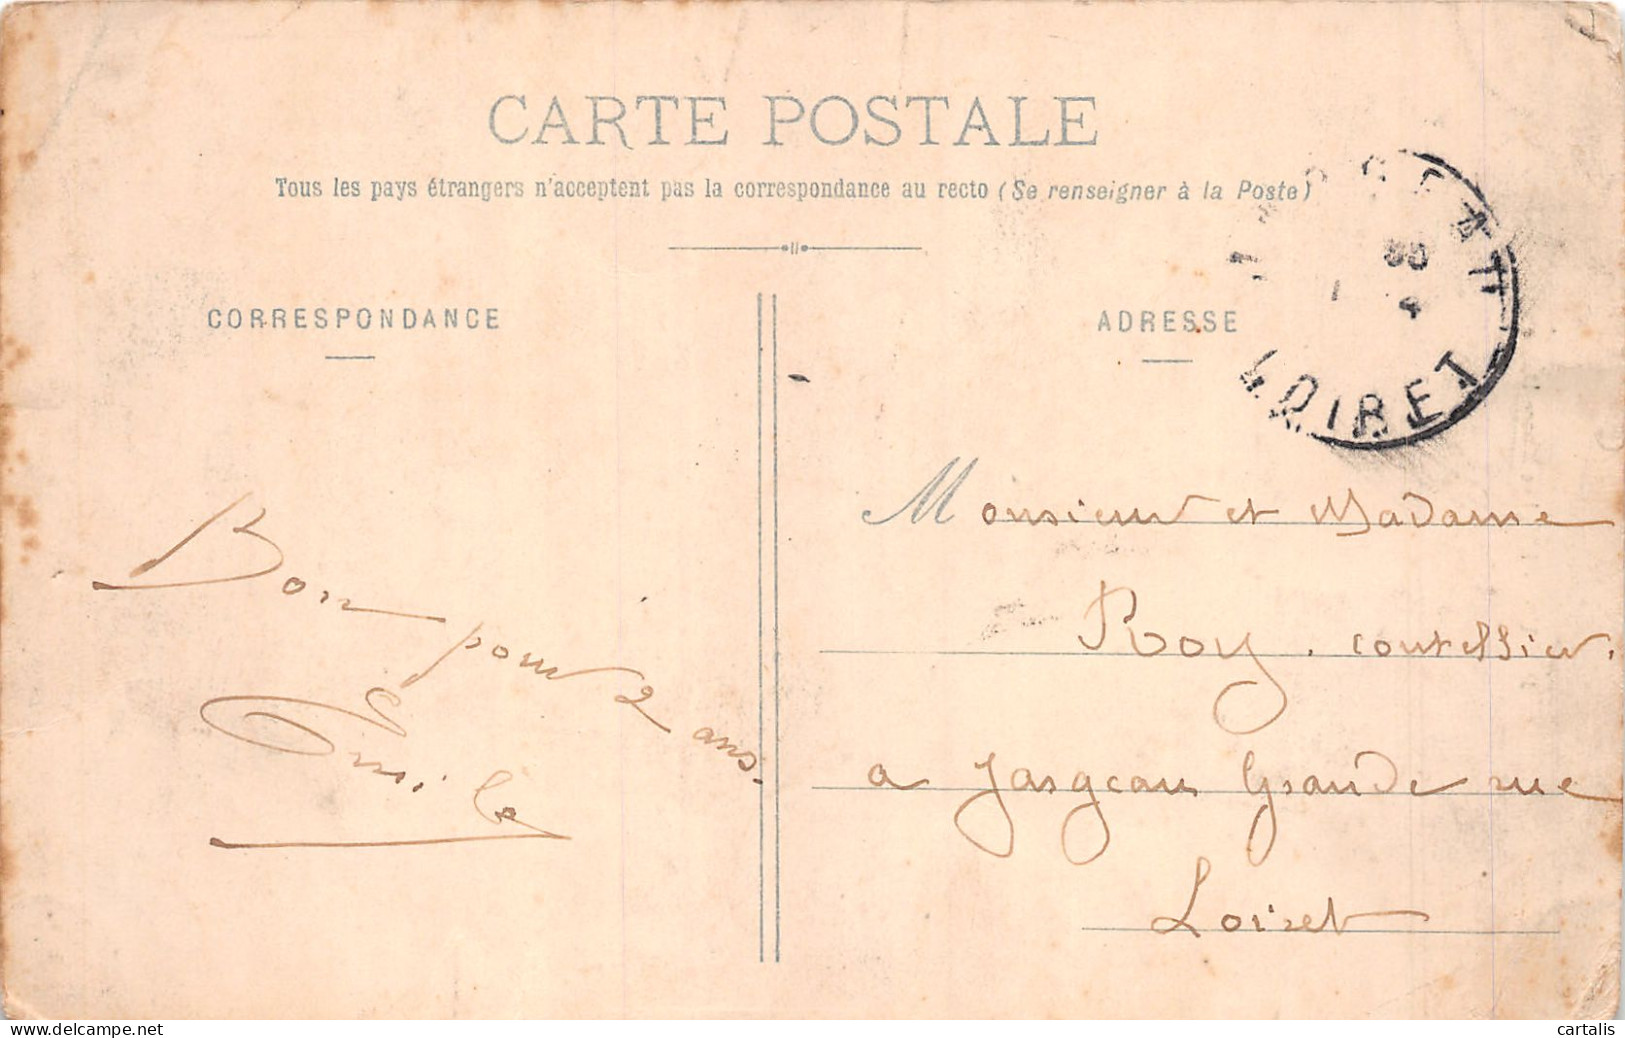 CARTE POSTALE
Tous les pays étrangers n'acceptent pas la correspondance au recto (Se renseigner à la Poste)
CORRESPONDANCE
ADRESSE
LOIRET
Bon pour 2 ans.
Emile
Monsieur et Madame
Roy. coutellier.
a Jargeau Grande rue
Loiret
www.delcampe.net
cartalis